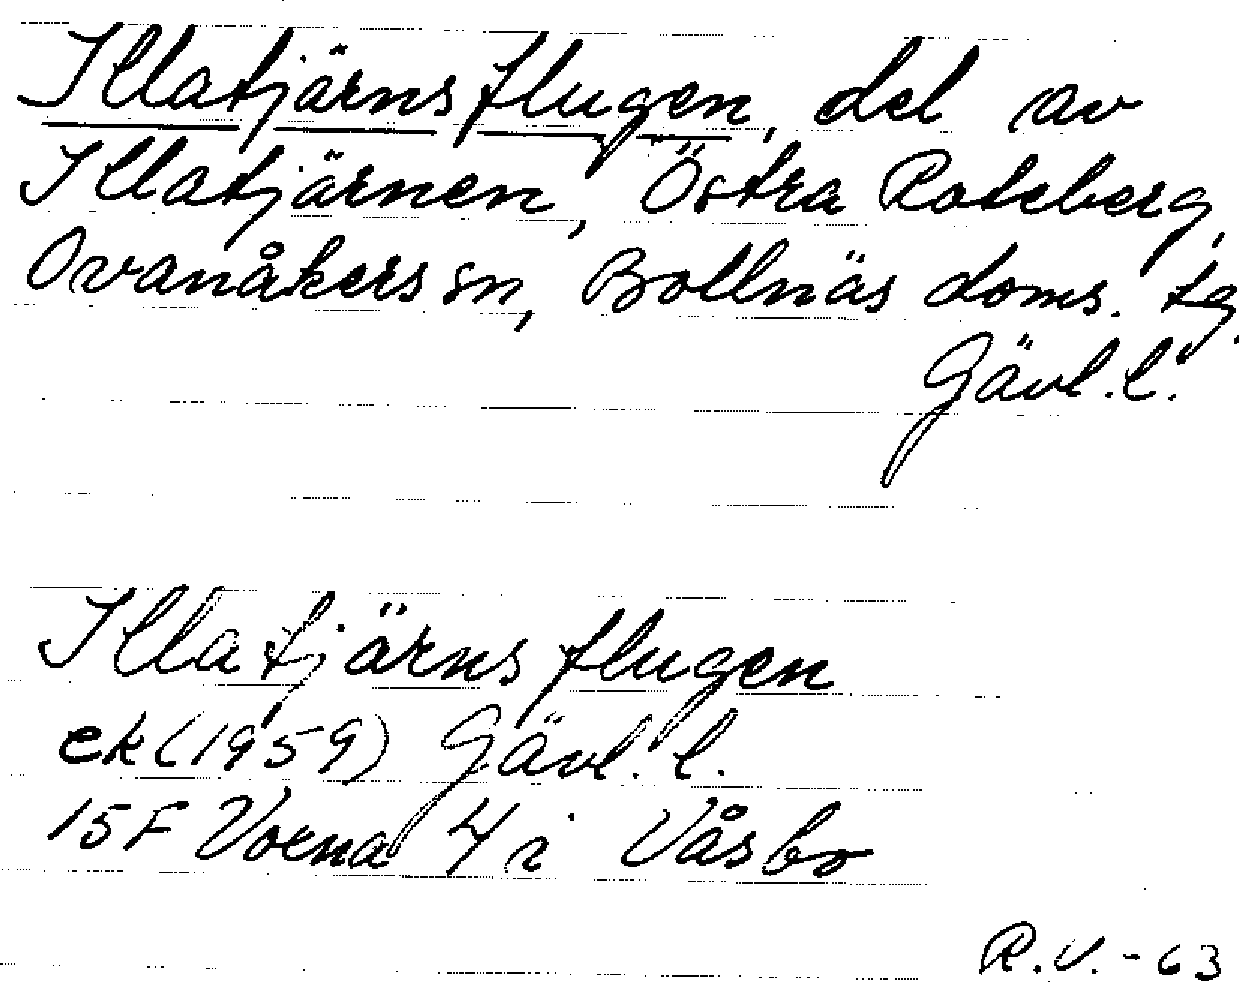 Illatjärnsflugen, del av
Illatjärnen, Östra Roteberg,
Ovanåkers sn, Bollnäs doms. tg.
Gävl. l.
Illatjärnsflugen
ek (1959) Gävl. l.
15F Voxna 4 i Våsbo
R.V. - 63